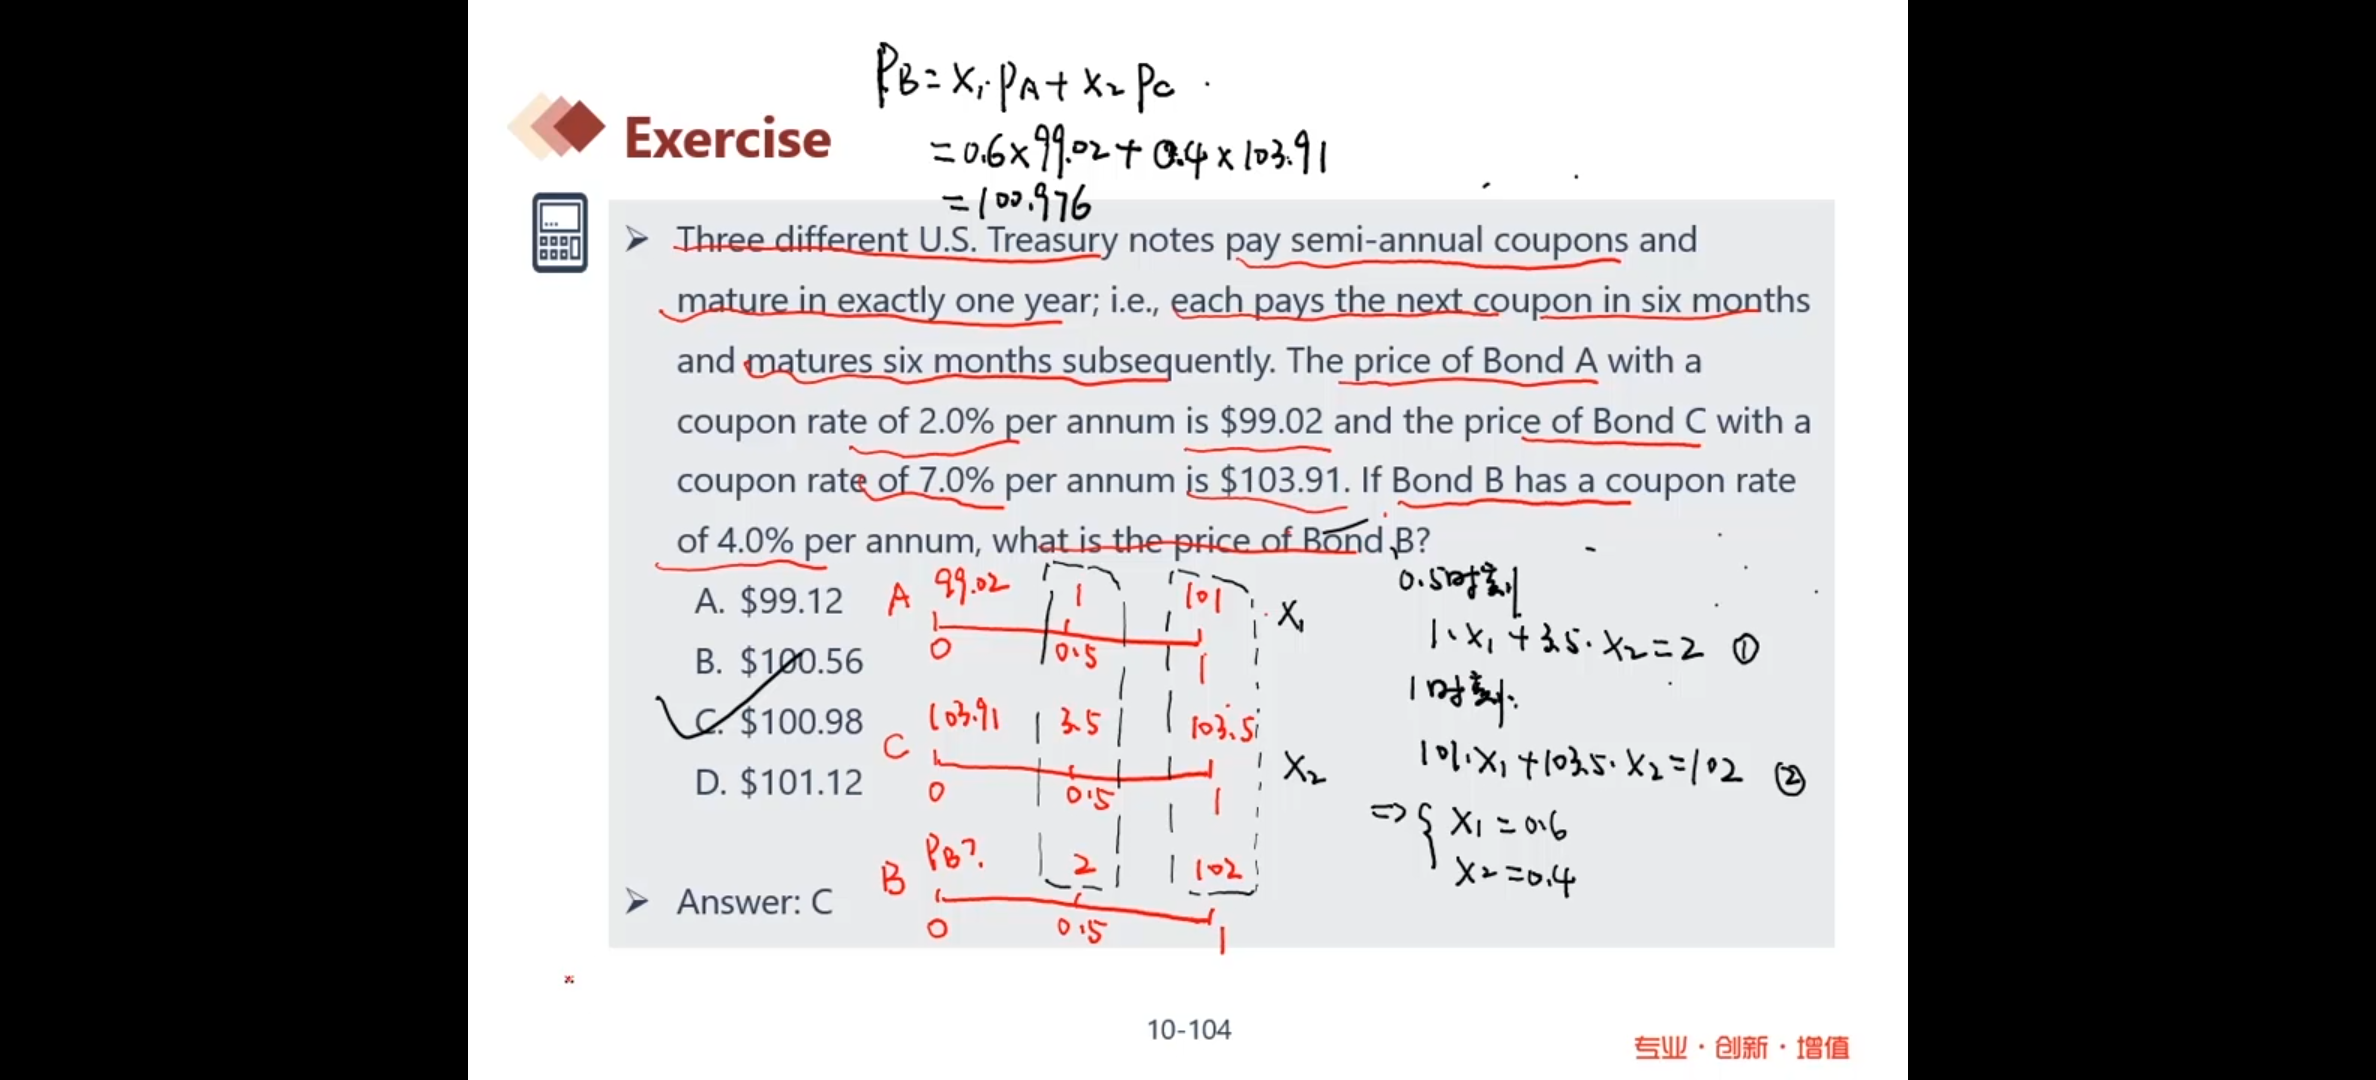 PB = x₁·PA + x₂ PC
= 0.6 × 99.02 + 0.4 × 103.91
= 100.976
Exercise
➢ Three different U.S. Treasury notes pay semi-annual coupons and
mature in exactly one year; i.e., each pays the next coupon in six months
and matures six months subsequently. The price of Bond A with a
coupon rate of 2.0% per annum is $99.02 and the price of Bond C with a
coupon rate of 7.0% per annum is $103.91. If Bond B has a coupon rate
of 4.0% per annum, what is the price of Bond B?
A. $99.12
B. $100.56
C. $100.98
D. $101.12
➢ Answer: C
A 99.02 1 101 x₁
0 0.5 1
C 103.91 3.5 103.5 x₂
0 0.5 1
B PB? 2 102
0 0.5 1
0.5时刻
1·x₁ + 3.5·x₂ = 2 ①
1时刻:
101·x₁ + 103.5·x₂ = 102 ②
⇒ { x₁ = 0.6
x₂ = 0.4
10-104
专业·创新·增值